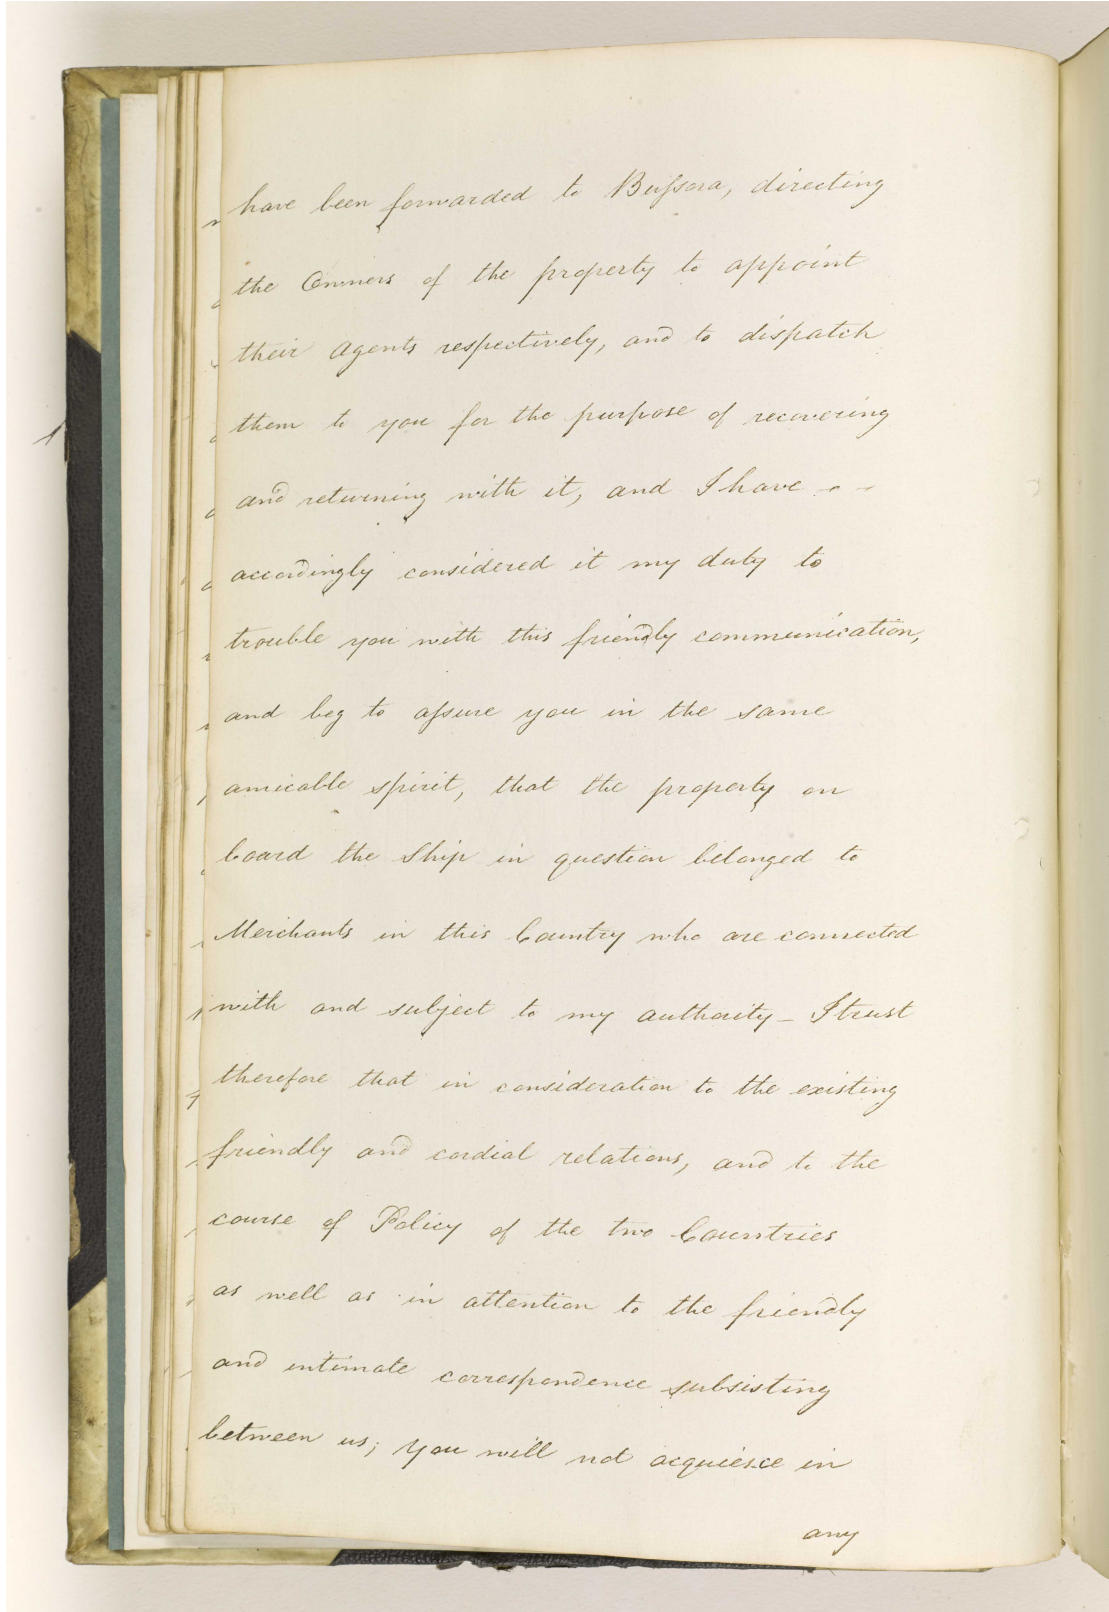 have been forwarded to Bussora, directing
the Owners of the property to appoint
their Agents respectively, and to dispatch
them to you for the purpose of recovering
and returning with it, and I have - -
accordingly considered it my duty to
trouble you with this friendly communication,
and beg to assure you in the same
amicable spirit, that the property on
board the Ship in question belonged to
Merchants in this Country who are connected
with and subject to my authority - I trust
therefore that in consideration to the existing
friendly and cordial relations, and to the
course of Policy of the two Countries
as well as in attention to the friendly
and intimate correspondence subsisting
between us; you will not acquiesce in
any